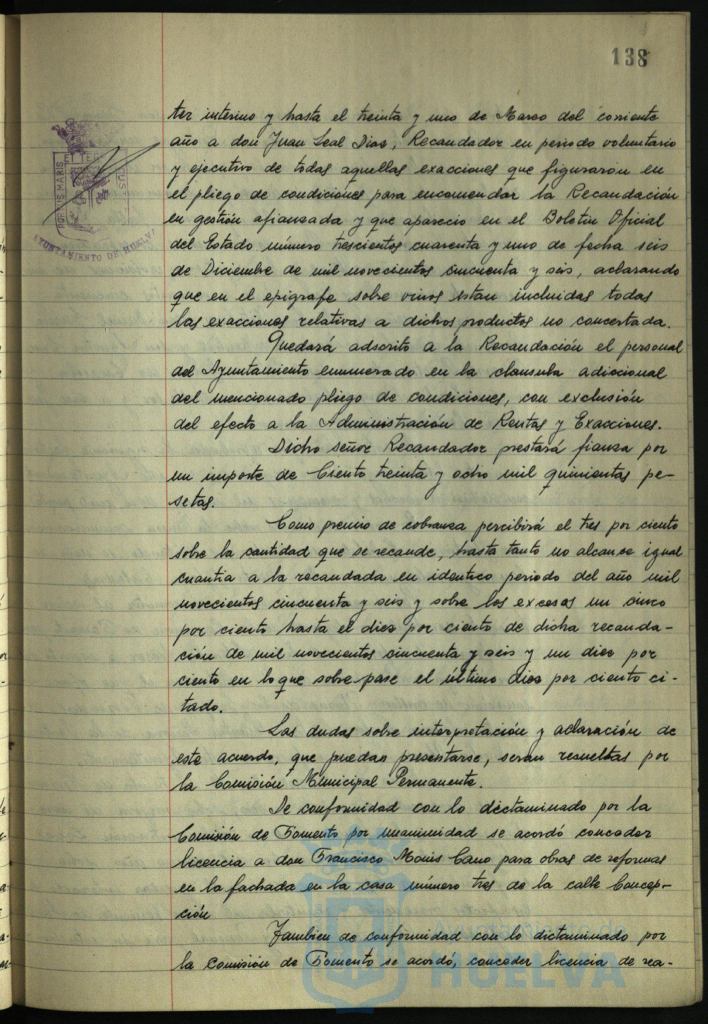 138
ter interino y hasta el treinta y uno de Marzo del corriente
año a don Juan Leal Dias, Recaudador en periodo voluntario
y ejecutivo de todas aquellas exacciones que figuraron en
el pliego de condiciones para encomendar la Recaudación
en gestión afianzada y que aparecio en el Boletin Oficial
del Estado número trescientos cuarenta y uno de fecha seis
de Diciembre de mil novecientos cincuenta y seis, aclarando
que en el epigrafe sobre vinos estan incluidas todas
las exacciones relativas a dichos productos no concertada.
Quedará adscrito a la Recaudación el personal
del Ayuntamiento enumerado en la clausula adiccional
del mencionado pliego de condiciones, con exclusión
del efecto a la Administración de Rentas y Exacciones.
Dicho señor Recaudador prestará fianza por
un importe de Ciento treinta y ocho mil quinientas pe-
setas.
Como premio de cobranza percibirá el tres por ciento
sobre la cantidad que se recaude, hasta tanto no alcance igual
cuantia a la recaudada en identico periodo del año mil
novecientos cincuenta y seis y sobre los excesos un cinco
por ciento hasta el diez por ciento de dicha recauda-
ción de mil novecientos cincuenta y seis y un diez por
ciento en lo que sobre pase el último diez por ciento ci-
tado.
Las dudas sobre interpretación y aclaración de
este acuerdo, que puedan presentarse, seran resueltas por
la Comisión Municipal Permanente.
De conformidad con lo dictaminado por la
Comisión de Fomento por unanimidad se acordó conceder
licencia a don Francisco Cano para obras de reformas
en la fachada en la casa número tres de la calle Concep-
ción
Tambien de conformidad con lo dictaminado por
la Comisión de Fomento se acordó, conceder licencia de rea-
PORTUS MARIS
AYUNTAMIENTO DE HUELVA
HUELVA